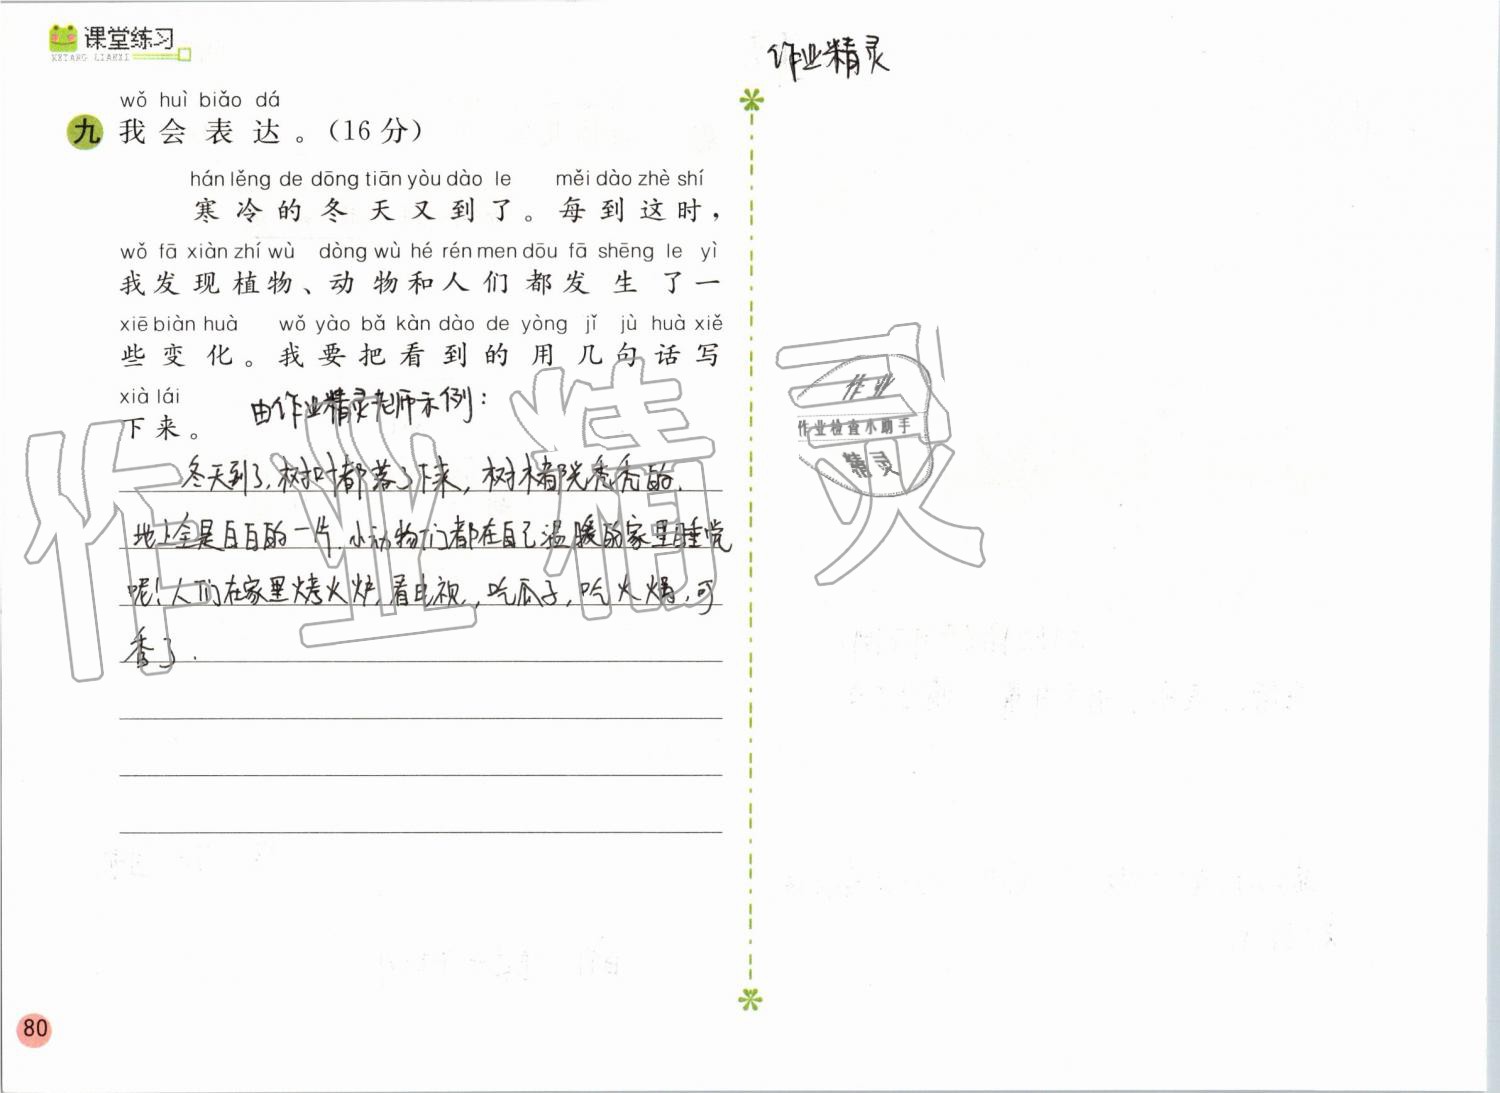 课堂练习
KETANG LIANXI
作业精灵
wǒ huì biǎo dá
九 我会表达。(16分)
hán lěng de dōng tiān yòu dào le měi dào zhè shí
寒冷的冬天又到了。每到这时，
wǒ fā xiàn zhí wù dòng wù hé rén men dōu fā shēng le yì
我发现植物、动物和人们都发生了一
xiē biàn huà wǒ yào bǎ kàn dào de yòng jǐ jù huà xiě
些变化。我要把看到的用几句话写
xià lái
下来。
由作业精灵老师示例：
冬天到了，树叶都落了下来，树木都光秃秃的.
地上全是白白的一片.小动物们都在自己温暖的家里睡觉
呢！人们在家里烤火炉,看电视，吃瓜子，吃火锅，可
香了.
作业精灵
作业
作业检查小助手
精灵
80